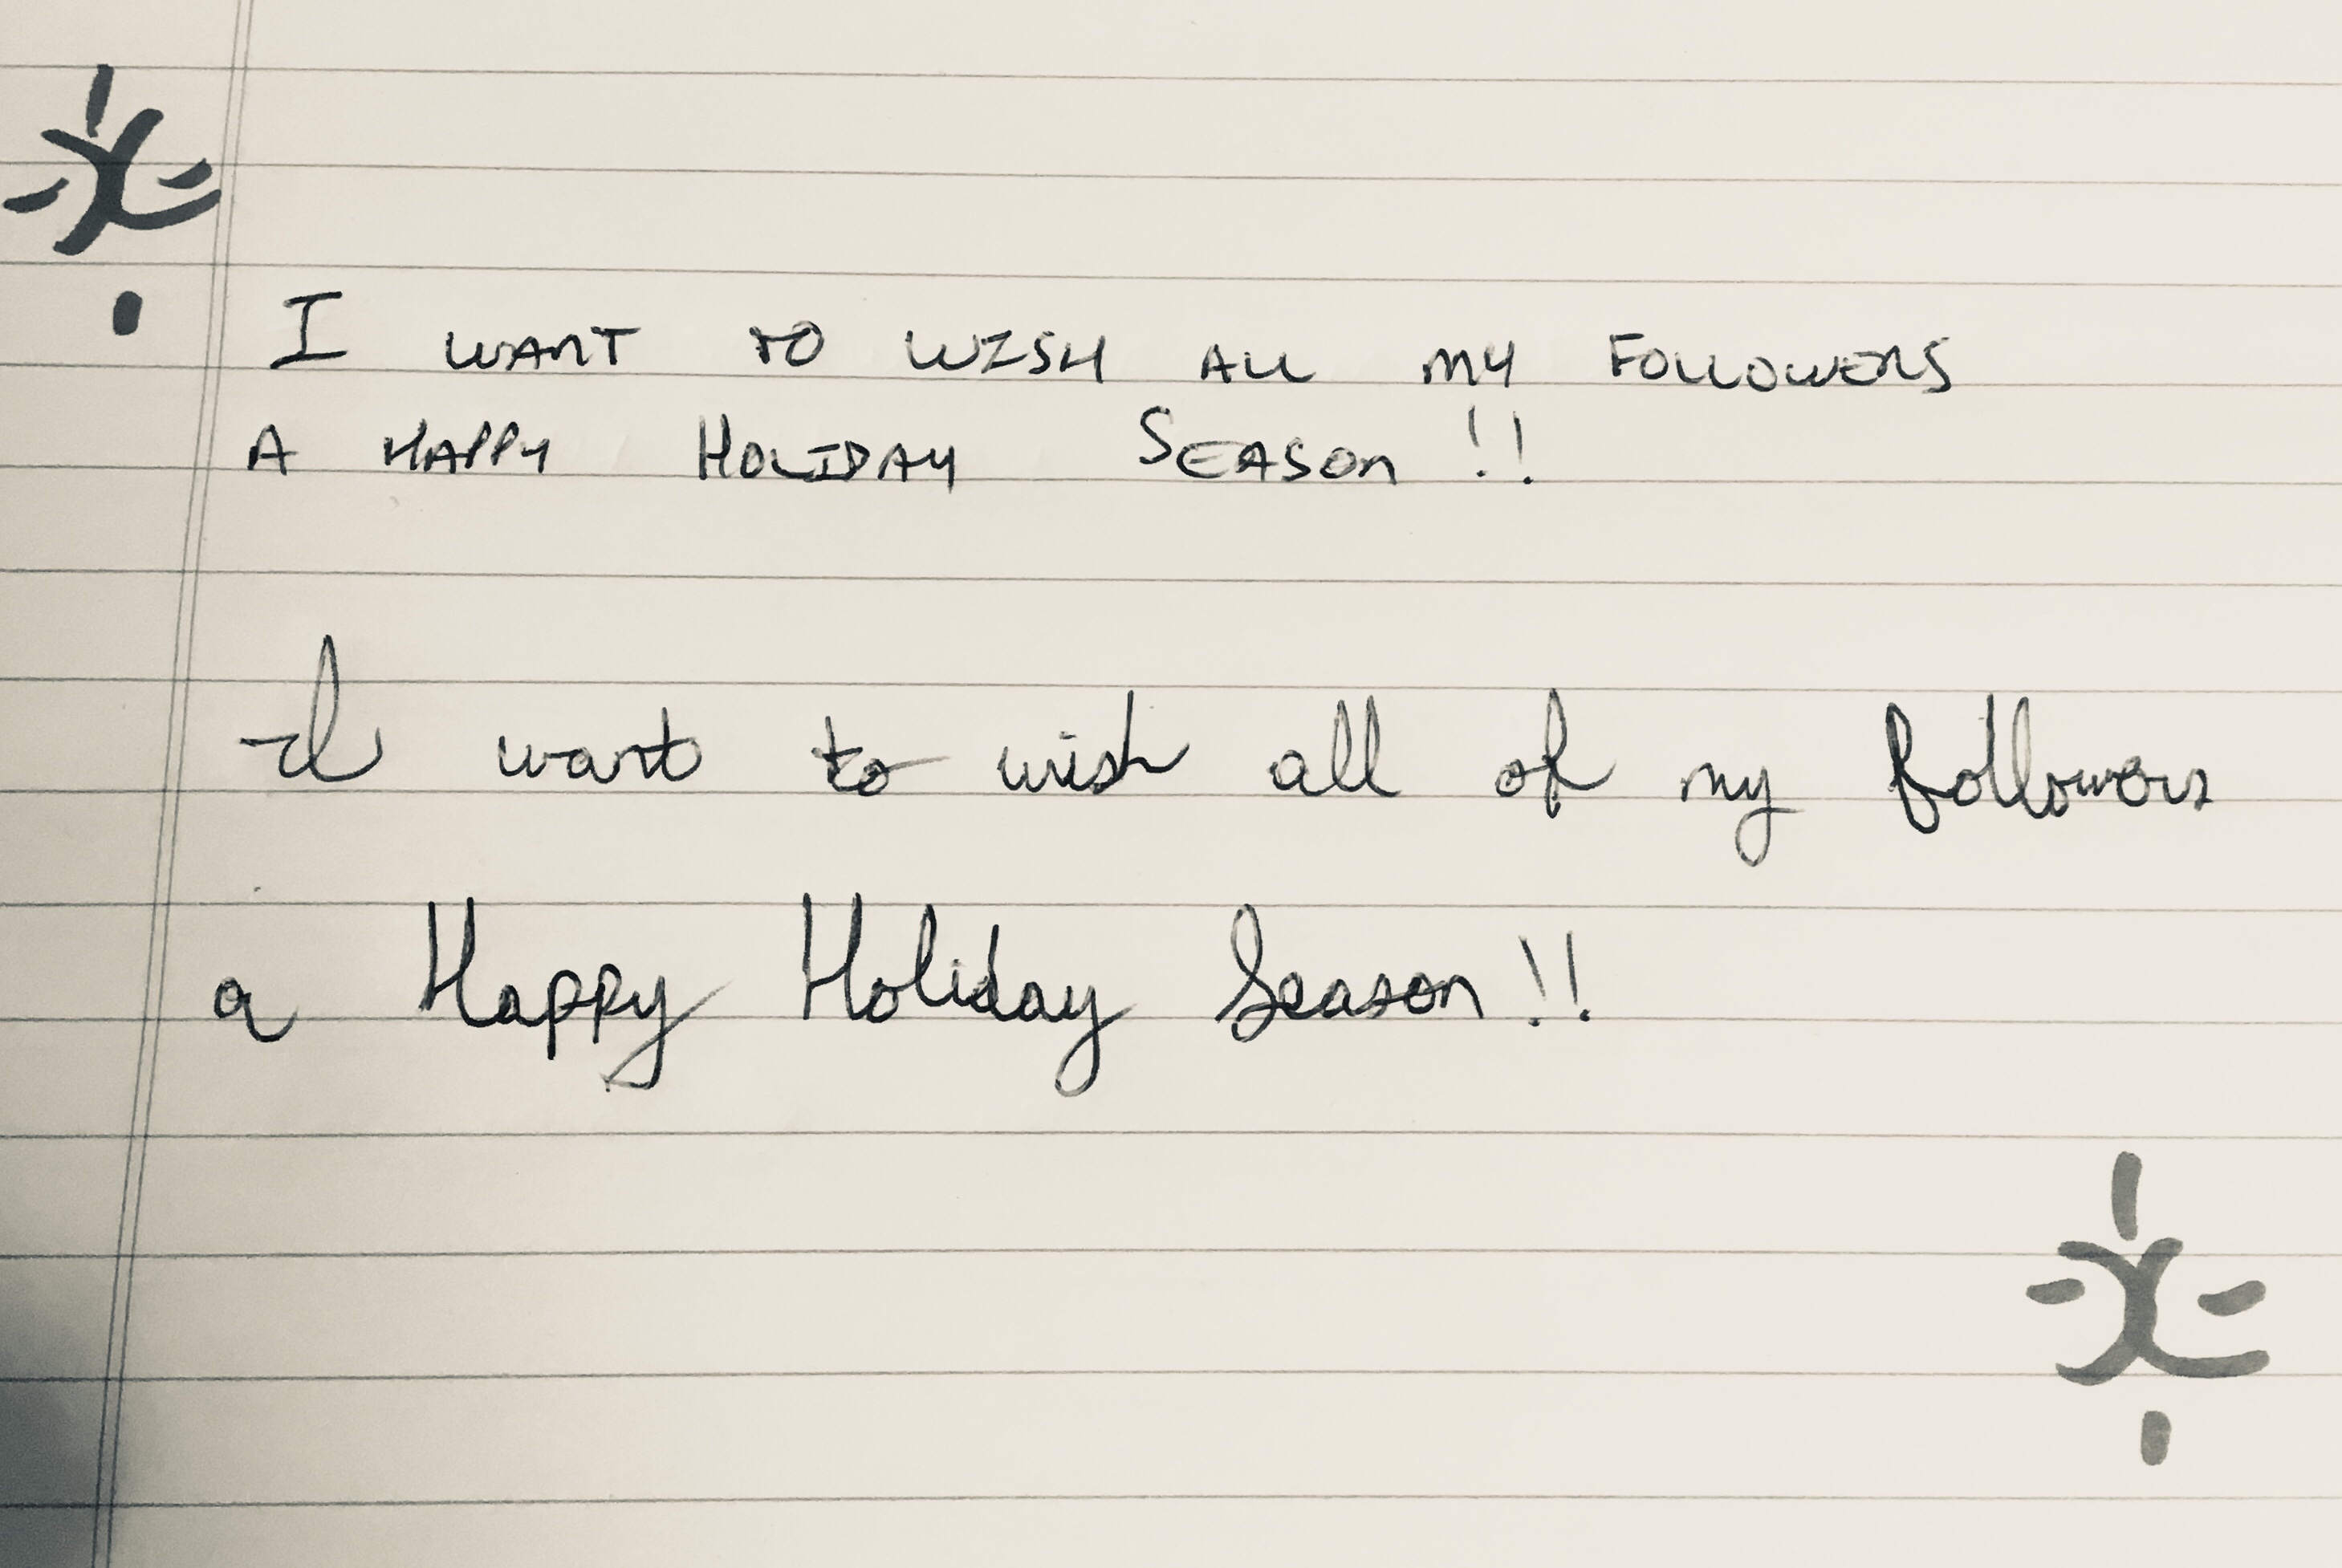 I WANT TO WISH ALL MY FOLLOWERS
A HAPPY HOLIDAY SEASON!!
I want to wish all of my followers
a Happy Holiday Season!!